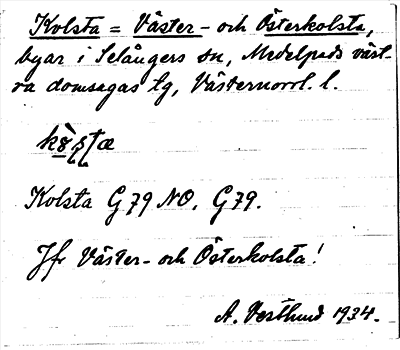 Kolsta = Väster- och Österkolsta,
byar i Selångers sn, Medelpads väst-
ra domsagas tg, Västernorrl. l.
Kolsta G 79 NO, G 79.
Jfr Väster- och Österkolsta!
A. Vestlund 1934.